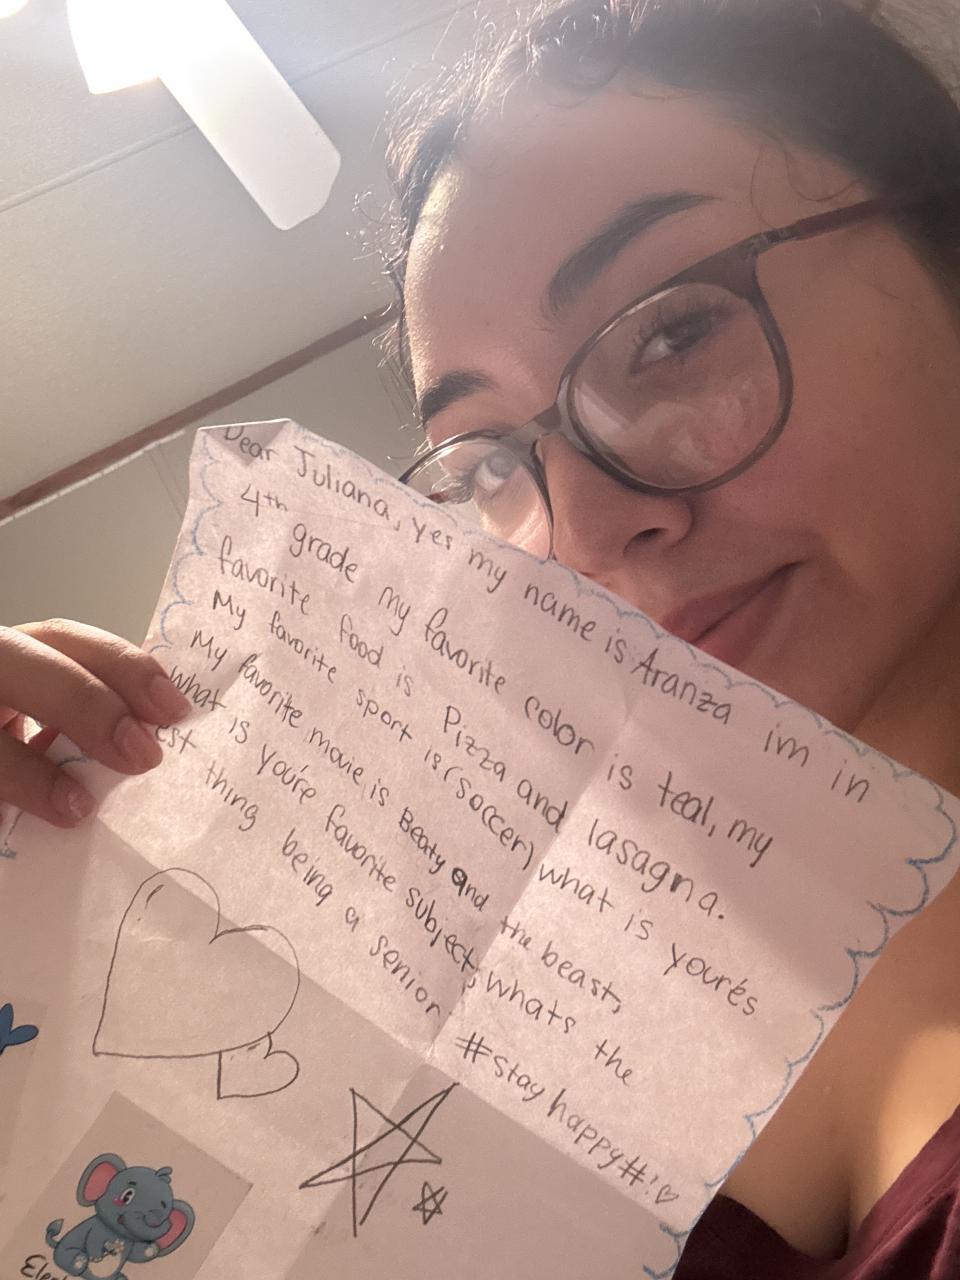 Dear Juliana, yes my name is Aranza im in
4th grade my favorite color is teal, my
favorite food is Pizza and lasagna.
My favorite sport is (soccer) what is youre's
My favorite movie is Beaty and the beast,
What is you're favorite subject, whats the
est thing being a senior
#stay happy#! ♡